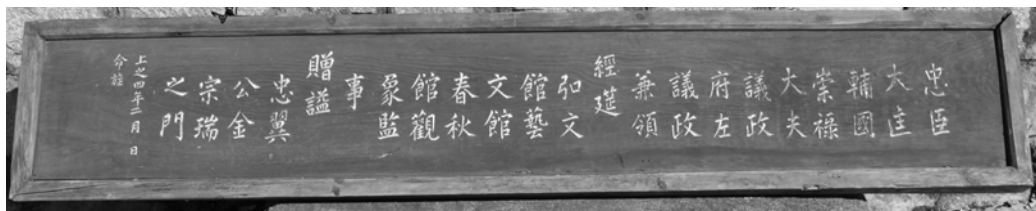 忠臣
大匡
輔國
崇祿
大夫
議政
府左
議政
兼領
經筵
弘文
館藝
文館
春秋
館觀
象監
事
贈謚
忠翼
公金
宗瑞
之門
上之四年二月 日
命